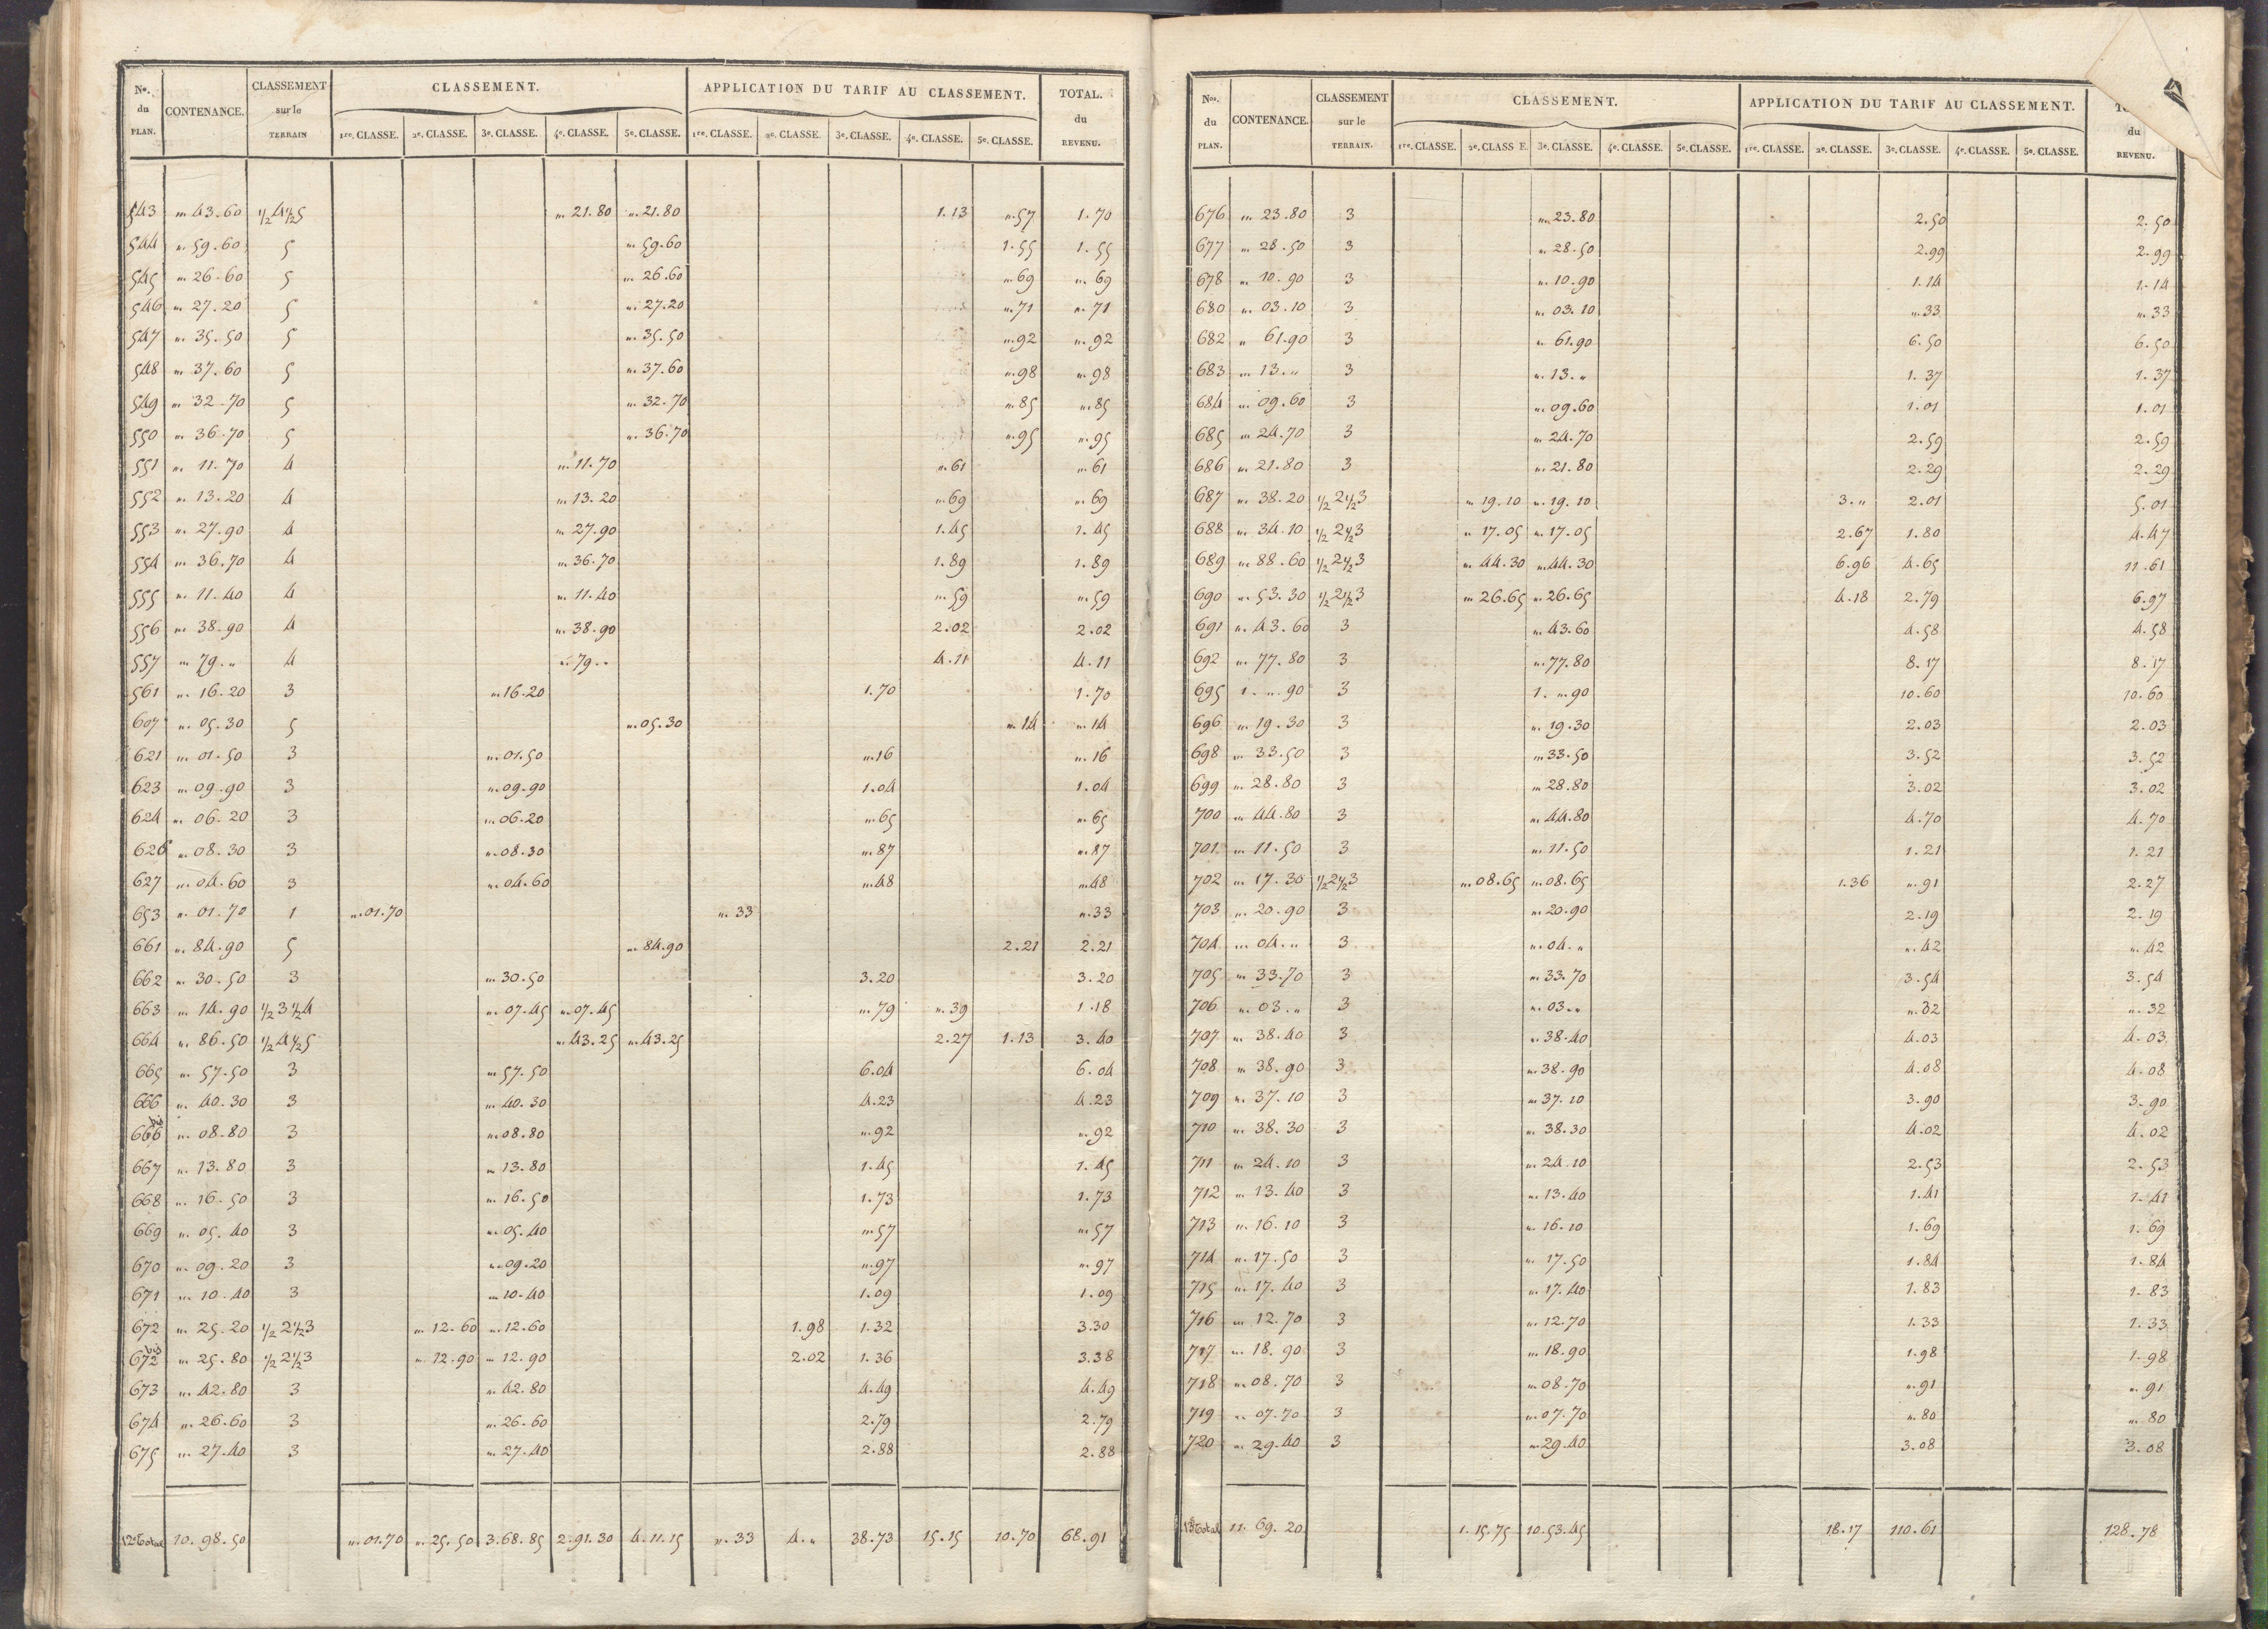 Nos. du PLAN. CONTENANCE. CLASSEMENT sur le TERRAIN CLASSEMENT. APPLICATION DU TARIF AU CLASSEMENT. TOTAL. du REVENU.
1re. CLASSE. 2e. CLASSE. 3e. CLASSE. 4e. CLASSE. 5e. CLASSE. 1re. CLASSE. 2e. CLASSE. 3e. CLASSE. 4e. CLASSE. 5e. CLASSE.
543 " 43.60 1/2 4 1/2 5 " 21.80 " 21.80 1.13 " 57 1.70
544 " 59.60 5 " 59.60 1.55 1.55
545 " 26.60 5 " 26.60 " 69 " 69
546 " 27.20 5 " 27.20 " 71 " 71
547 " 35.50 5 " 35.50 " 92 " 92
548 " 37.60 5 " 37.60 " 98 " 98
549 " 32.70 5 " 32.70 " 85 " 85
550 " 36.70 5 " 36.70 " 95 " 95
551 " 11.70 4 " 11.70 " 61 " 61
552 " 13.20 4 " 13.20 " 69 " 69
553 " 27.90 4 " 27.90 1.45 1.45
554 " 36.70 4 " 36.70 1.89 1.89
555 " 11.40 4 " 11.40 " 59 " 59
556 " 38.90 4 " 38.90 2.02 2.02
557 " 79." 4 " 79." 4.11 4.11
561 " 16.20 3 " 16.20 1.70 1.70
607 " 05.30 5 " 05.30 " 14 " 14
621 " 01.50 3 " 01.50 " 16 " 16
623 " 09.90 3 " 09.90 1.04 1.04
624 " 06.20 3 " 06.20 " 65 " 65
626 " 08.30 3 " 08.30 " 87 " 87
627 " 04.60 3 " 04.60 " 48 " 48
653 " 01.70 1 " 01.70 " 33 " 33
661 " 84.90 5 " 84.90 2.21 2.21
662 " 30.50 3 " 30.50 3.20 3.20
663 " 14.90 1/2 3 1/2 4 " 07.45 " 07.45 " 79 " 39 1.18
664 " 86.50 1/2 4 1/2 5 " 43.25 " 43.25 2.27 1.13 3.40
665 " 57.50 3 " 57.50 6.04 6.04
666 " 40.30 3 " 40.30 4.23 4.23
666 bis " 08.80 3 " 08.80 " 92 " 92
667 " 13.80 3 " 13.80 1.45 1.45
668 " 16.50 3 " 16.50 1.73 1.73
669 " 05.40 3 " 05.40 " 57 " 57
670 " 09.20 3 " 09.20 " 97 " 97
671 " 10.40 3 " 10.40 1.09 1.09
672 " 25.20 1/2 2 1/2 3 " 12.60 " 12.60 1.98 1.32 3.30
672 bis " 25.80 1/2 2 1/2 3 " 12.90 " 12.90 2.02 1.36 3.38
673 " 42.80 3 " 42.80 4.49 4.49
674 " 26.60 3 " 26.60 2.79 2.79
675 " 27.40 3 " 27.40 2.88 2.88
12e Total 10.98.50 " 01.70 " 25.50 3.68.85 2.91.30 4.11.15 " 33 4." 38.73 15.15 10.70 68.91
Nos. du PLAN. CONTENANCE. CLASSEMENT sur le TERRAIN. CLASSEMENT. APPLICATION DU TARIF AU CLASSEMENT. du REVENU.
1re. CLASSE. 2e. CLASSE. 3e. CLASSE. 4e. CLASSE. 5e. CLASSE. 1re. CLASSE. 2e. CLASSE. 3e. CLASSE. 4e. CLASSE. 5e. CLASSE.
676 " 23.80 3 " 23.80 2.50 2.50
677 " 28.50 3 " 28.50 2.99 2.99
678 " 10.90 3 " 10.90 1.14 1.14
680 " 03.10 3 " 03.10 " 33 " 33
682 " 61.90 3 " 61.90 6.50 6.50
683 " 13." 3 " 13." 1.37 1.37
684 " 09.60 3 " 09.60 1.01 1.01
685 " 24.70 3 " 24.70 2.59 2.59
686 " 21.80 3 " 21.80 2.29 2.29
687 " 38.20 1/2 2 1/2 3 " 19.10 " 19.10 3." 2.01 5.01
688 " 34.10 1/2 2 1/2 3 " 17.05 " 17.05 2.67 1.80 4.47
689 " 88.60 1/2 2 1/2 3 " 44.30 " 44.30 6.96 4.65 11.61
690 " 53.30 1/2 2 1/2 3 " 26.65 " 26.65 4.18 2.79 6.97
691 " 43.60 3 " 43.60 4.58 4.58
692 " 77.80 3 " 77.80 8.17 8.17
695 1. " 90 3 1. " 90 10.60 10.60
696 " 19.30 3 " 19.30 2.03 2.03
698 " 33.50 3 " 33.50 3.52 3.52
699 " 28.80 3 " 28.80 3.02 3.02
700 " 44.80 3 " 44.80 4.70 4.70
701 " 11.50 3 " 11.50 1.21 1.21
702 " 17.30 1/2 2 1/2 3 " 08.65 " 08.65 1.36 " 91 2.27
703 " 20.90 3 " 20.90 2.19 2.19
704 " 04." 3 " 04." " 42 " 42
705 " 33.70 3 " 33.70 3.54 3.54
706 " 03." 3 " 03." " 32 " 32
707 " 38.40 3 " 38.40 4.03 4.03
708 " 38.90 3 " 38.90 4.08 4.08
709 " 37.10 3 " 37.10 3.90 3.90
710 " 38.30 3 " 38.30 4.02 4.02
711 " 24.10 3 " 24.10 2.53 2.53
712 " 13.40 3 " 13.40 1.41 1.41
713 " 16.10 3 " 16.10 1.69 1.69
714 " 17.50 3 " 17.50 1.84 1.84
715 " 17.40 3 " 17.40 1.83 1.83
716 " 12.70 3 " 12.70 1.33 1.33
717 " 18.90 3 " 18.90 1.98 1.98
718 " 08.70 3 " 08.70 " 91 " 91
719 " 07.70 3 " 07.70 " 80 " 80
720 " 29.40 3 " 29.40 3.08 3.08
13e Total 11.69.20 1.15.75 10.53.45 18.17 110.61 128.78